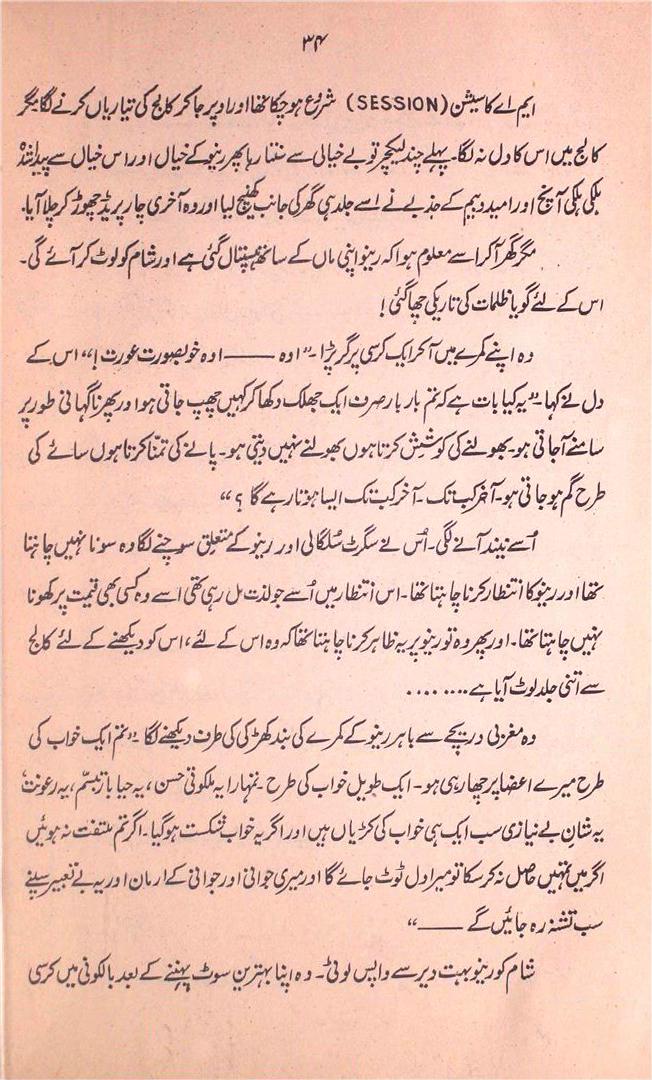 ۳۴
ایم اے کا سیشن (SESSION) شروع ہو چکا تھا اور اوپر جا کر کالج کی تیاریاں کرنے لگا مگر
کالج میں اس کا دل نہ لگا۔ پہلے چند لیکچر تو بے خیالی سے سنتا رہا پھر رینو کے خیال اور اس خیال سے پیدا شدہ
ہلکی ہلکی آنچ اور امید و بیم کے جذبے نے اسے جلد ہی گھر کی جانب کھینچ لیا اور وہ آخری چار پریڈ چھوڑ کر چلا آیا۔
مگر گھر آکر اسے معلوم ہوا کہ رینو اپنی ماں کے ساتھ ہسپتال گئی ہے اور شام کو لوٹ کر آئے گی۔
اس کے لئے گویا ظلمات کی تاریکی چھا گئی!
وہ اپنے کمرے میں آکر ایک کرسی پر گر پڑا۔ ”اوہ —— اوہ خوبصورت عورت!“ اس کے
دل نے کہا۔ ”یہ کیا بات ہے کہ تم بار بار صرف ایک جھلک دکھا کر کہیں چھپ جاتی ہو اور پھر ناگہانی طور پر
سامنے آجاتی ہو۔ بھولنے کی کوشش کرتا ہوں بھولنے نہیں دیتی ہو۔ پانے کی تمنّا کرتا ہوں سائے کی
طرح گم ہو جاتی ہو۔ آخر کب تک۔ آخر کب تک ایسا ہوتا رہے گا ؟“
اُسے نیند آنے لگی۔ اُس نے سگرٹ سُلگائی اور رینو کے متعلق سوچنے لگا وہ سونا نہیں چاہتا
تھا اور رینو کا انتظار کرنا چاہتا تھا۔ اس انتظار میں اُسے جو لذت مل رہی تھی اسے وہ کسی بھی قیمت پر کھونا
نہیں چاہتا تھا۔ اور پھر وہ تو رینو پر یہ ظاہر کرنا چاہتا تھا کہ وہ اس کے لئے، اس کو دیکھنے کے لئے کالج
سے اتنی جلد لوٹ آیا ہے .........
وہ مغربی دریچے سے باہر رینو کے کمرے کی بند کھڑکی کی طرف دیکھنے لگا۔ ”تم ایک خواب کی
طرح میرے اعضا پر چھا رہی ہو۔ ایک طویل خواب کی طرح۔ تمہارا یہ ملکوتی حسن، یہ حیا بار تبسّم، یہ رعونت
یہ شانِ بے نیازی سب ایک ہی خواب کی کڑیاں ہیں اور اگر یہ خواب شکست ہو گیا۔ اگر تم ملتفت نہ ہوئیں
اگر میں تمہیں حاصل نہ کر سکا تو میرا دل ٹوٹ جائے گا اور میری جوانی اور جوانی کے ارمان اور یہ بے تعبیر سپنے
سب تشنہ رہ جائیں گے ——“
شام کو رینو بہت دیر سے واپس لوٹی۔ وہ اپنا بہترین سوٹ پہننے کے بعد بالکونی میں کرسی